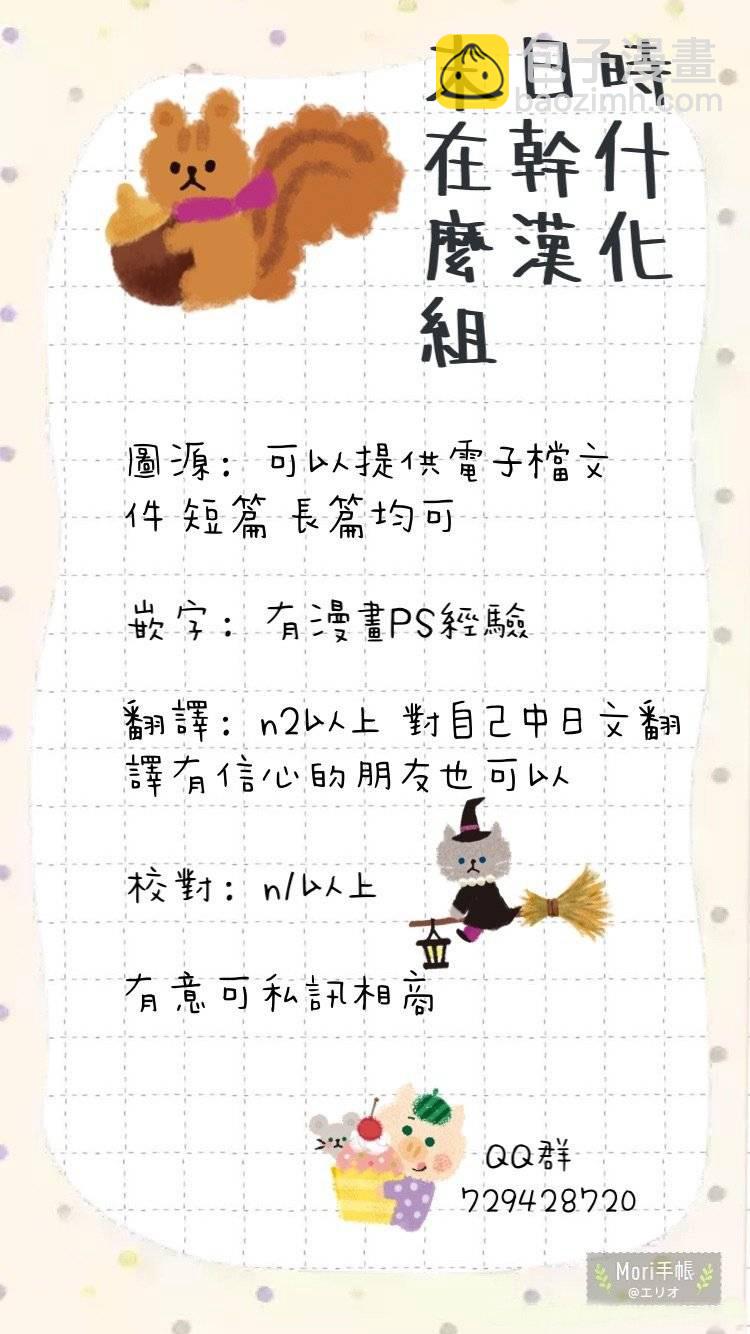 包子漫畫
baozimh.com
末日時
在幹什
麼漢化
組
圖源：可以提供電子檔文
件 短篇 長篇均可
嵌字：有漫畫PS經驗
翻譯：n2以上 對自己中日文翻
譯有信心的朋友也可以
校對：n1以上
有意可私訊相商
QQ群
729428720
Mori手帳
@エリオ